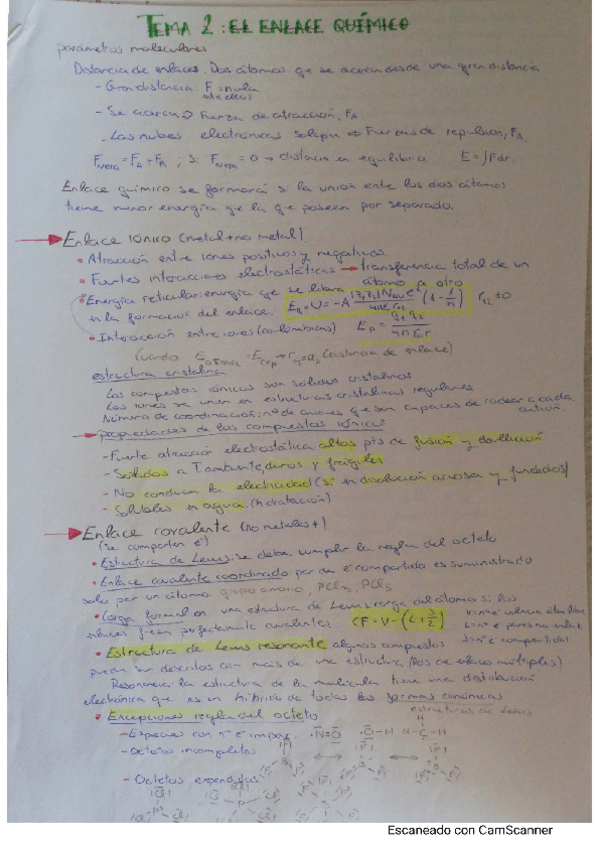 TEMA 2: EL ENLACE QUÍMICO
parámetros moleculares
Distancia de enlaces. Dos átomos que se acercan desde una gran distancia
- Gran distancia: F = nula
- Se acercan ⇒ Fuerza de atracción, FA
- Las nubes electrónicas solapan ⇒ Fuerzas de repulsión, FR
FNETA = FA + FR ; si FNETA = 0 → distancia en equilibrio E = ∫F dr.
Enlace químico se formará si la unión entre los dos átomos
tiene menor energía que la que poseen por separado.
→ Enlace iónico (metal + no metal)
• Atracción entre iones positivos y negativos
• Fuertes interacciones electrostáticas → transferencia total de un
átomo a otro
• Energía reticular: energía que se libera
en la formación del enlace.
• Interacción entre iones (coulombianas)
Cuando (distancia de enlace)
estructura cristalina
Los compuestos iónicos son sólidos cristalinos
Los iones se unen en estructuras cristalinas regulares
Número de coordinación: nº de aniones que son capaces de rodear a cada
catión.
→ propiedades de los compuestos iónicos
- Fuerte atracción electrostática altos pts de fusión y ebullición
- Sólidos a Tambiente, duros y frágiles
- No conducen la electricidad (sí en disolución acuosa y fundidos)
- Solubles en agua (hidratación)
→ Enlace covalente (no metales +)
(Se comparten e⁻)
• Estructura de Lewis: se debe cumplir la regla del octeto
• Enlace covalente coordinado par de e⁻ compartido es suministrado
solo por un átomo. grupo amonio, PCl3, PCl5
• Carga formal en una estructura de Lewis carga del átomo si los
enlaces fueran perfectamente covalentes CF = V - (L + S/2)
• Estructura de Lewis resonante algunos compuestos
pueden ser descritos con más de una estructura (los de enlace múltiples)
Resonancia: la estructura de la molécula tiene una distribución
electrónica que es un híbrido de todas las formas canónicas
estructuras de Lewis
• Excepciones regla del octeto
- Especies con nº e⁻ impar.
- Octetos incompletos
- Octetos expandidos
Escaneado con CamScanner